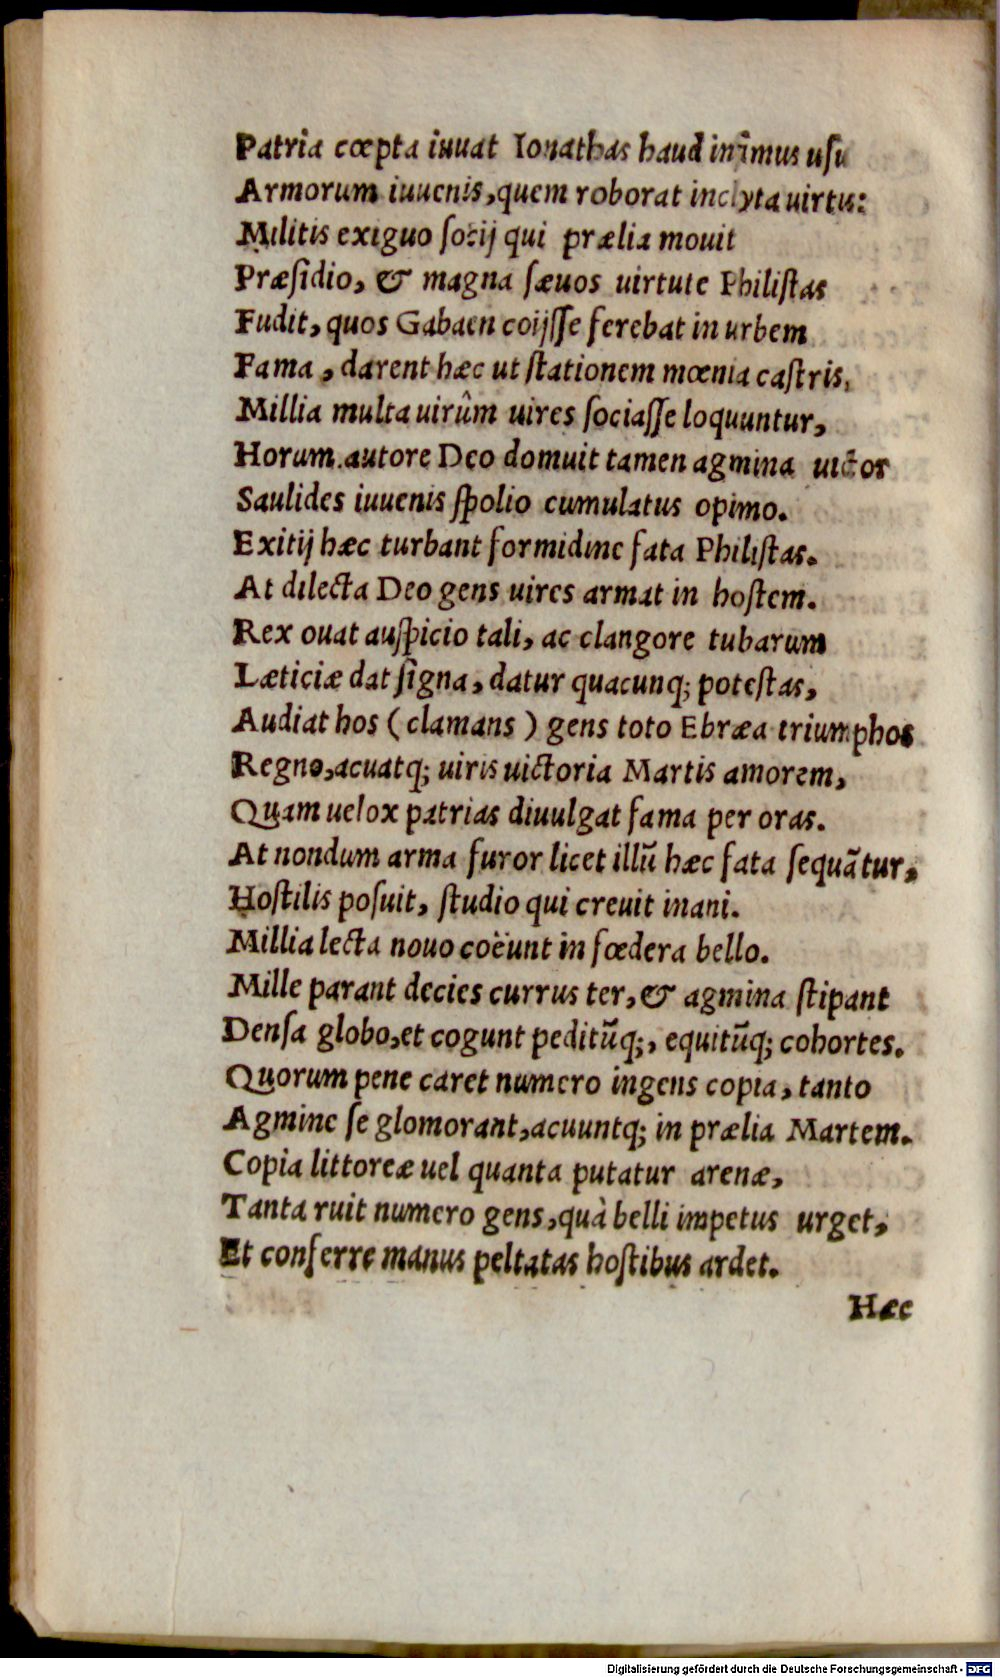 Patria cœpta iuuat Ionathas haud infimus usu
Armorum iuuenis, quem roborat inclyta uirtus
Militis exiguo socij qui prælia mouit
Præſidio, & magna ſæuos uirtute Philiſtas
Fudit, quos Gabaen coijſſe ferebat in urbem
Fama, darent hæc ut ſtationem mœnia caſtris,
Millia multa uirûm uires ſociaſſe loquuntur,
Horum autore Deo domuit tamen agmina uictor
Saulides iuuenis ſpolio cumulatus opimo.
Exitij hæc turbant formidine fata Philiſtas.
At dilecta Deo gens uires armat in hoſtem.
Rex ouat auſpicio tali, ac clangore tubarum
Læticiæ dat ſigna, datur quacunq; poteſtas,
Audiat hos (clamans) gens toto Ebræa triumphos
Regno, acuatq; uiris uictoria Martis amorem,
Quam uelox patrias diuulgat fama per oras.
At nondum arma furor licet illũ hæc fata ſequãtur,
Hoſtilis poſuit, ſtudio qui creuit inani.
Millia lecta nouo coëunt in fœdera bello.
Mille parant decies currus ter, & agmina ſtipant
Denſa globo, et cogunt peditũq;, equitũq; cohortes.
Quorum pene caret numero ingens copia, tanto
Agmine ſe glomorant, acuuntq; in prælia Martem.
Copia littoreæ uel quanta putatur arenæ,
Tanta ruit numero gens, quà belli impetus urget,
Et conferre manus peltatas hoſtibus ardet.
Hæc
Digitalisierung gefördert durch die Deutsche Forschungsgemeinschaft - DFG